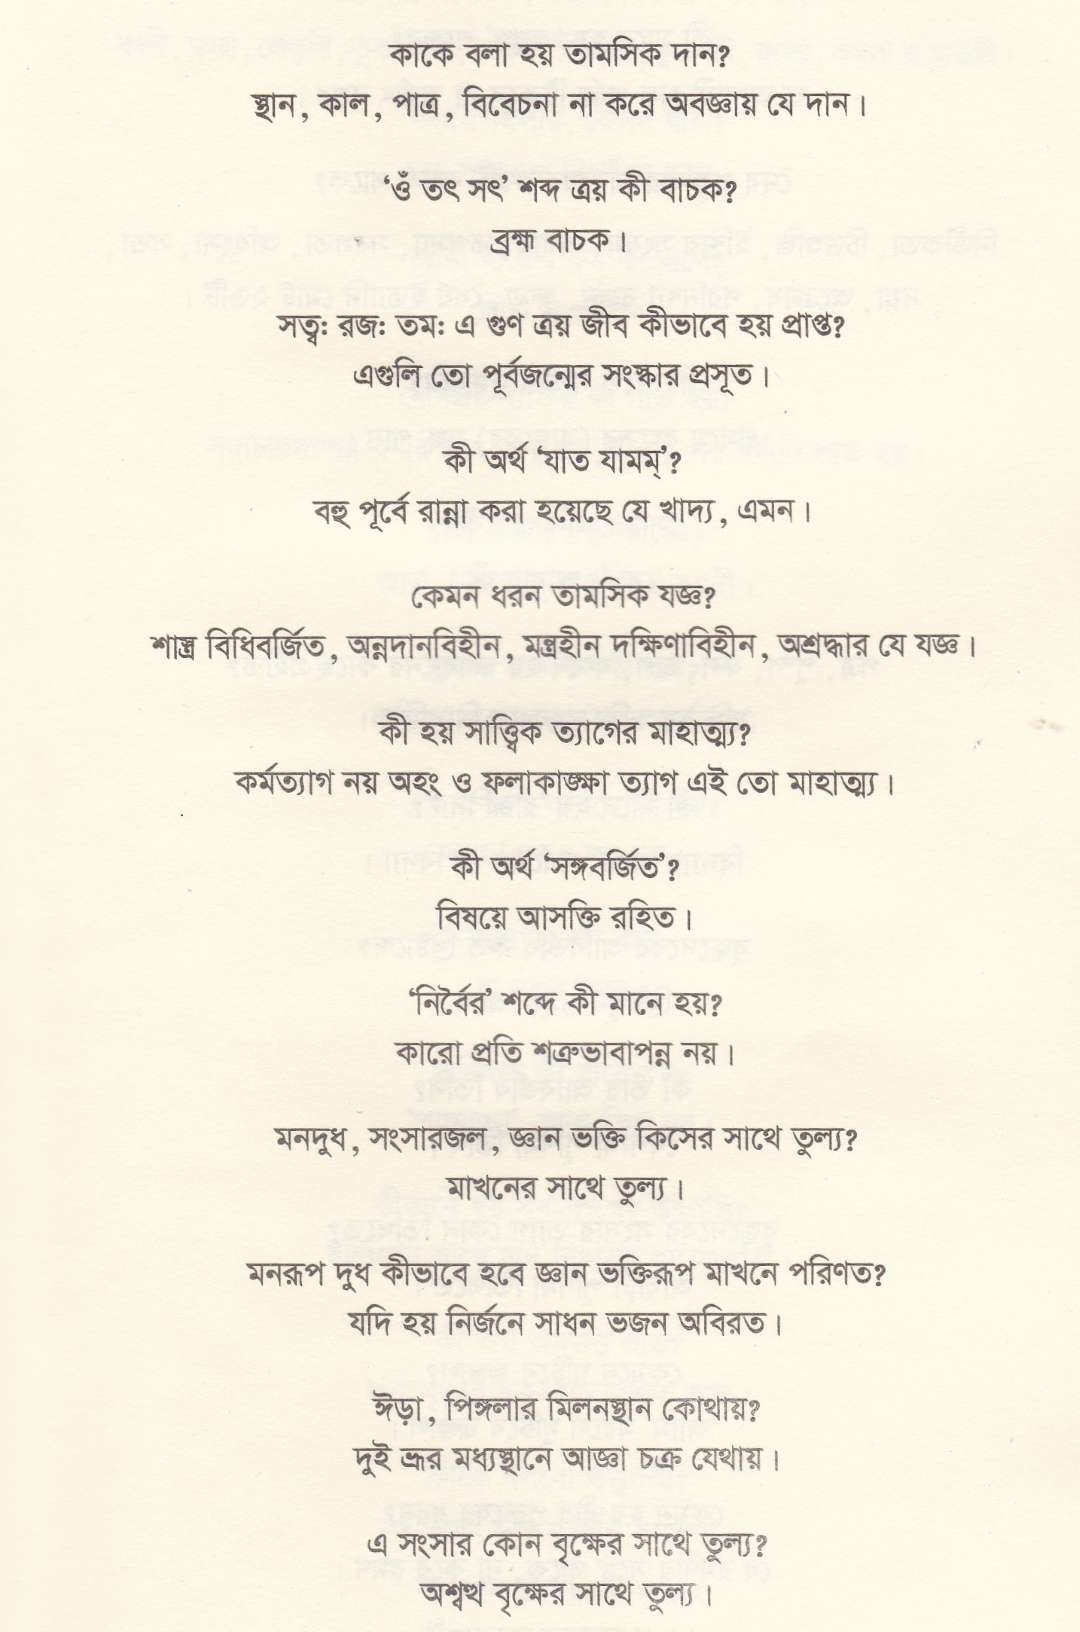 কাকে বলা হয় তামসিক দান?
স্থান, কাল, পাত্র, বিবেচনা না করে অবজ্ঞায় যে দান।
‘ওঁ তৎ সৎ’ শব্দ ত্রয় কী বাচক?
ব্রহ্ম বাচক।
সত্ত্ব: রজ: তম: এ গুণ ত্রয় জীব কীভাবে হয় প্রাপ্ত?
এগুলি তো পূর্বজন্মের সংস্কার প্রসূত।
কী অর্থ ‘যাত যামম্’?
বহু পূর্বে রান্না করা হয়েছে যে খাদ্য, এমন।
কেমন ধরন তামসিক যজ্ঞ?
শাস্ত্র বিধিবর্জিত, অন্নদানবিহীন, মন্ত্রহীন দক্ষিণাবিহীন, অশ্রদ্ধার যে যজ্ঞ।
কী হয় সাত্ত্বিক ত্যাগের মাহাত্ম্য?
কর্মত্যাগ নয় অহং ও ফলাকাঙ্ক্ষা ত্যাগ এই তো মাহাত্ম্য।
কী অর্থ ‘সঙ্গবর্জিত’?
বিষয়ে আসক্তি রহিত।
‘নির্বৈর’ শব্দে কী মানে হয়?
কারো প্রতি শত্রুভাবাপন্ন নয়।
মনদুধ, সংসারজল, জ্ঞান ভক্তি কিসের সাথে তুল্য?
মাখনের সাথে তুল্য।
মনরূপ দুধ কীভাবে হবে জ্ঞান ভক্তিরূপ মাখনে পরিণত?
যদি হয় নির্জনে সাধন ভজন অবিরত।
ঈড়া, পিঙ্গলার মিলনস্থান কোথায়?
দুই ভ্রূর মধ্যস্থানে আজ্ঞা চক্র যেথায়।
এ সংসার কোন বৃক্ষের সাথে তুল্য?
অশ্বত্থ বৃক্ষের সাথে তুল্য।